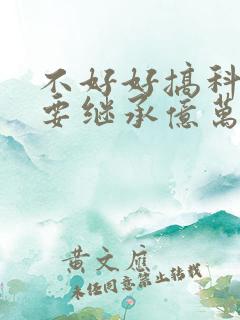 不好好搞科
要继承億萬
黄文應
未经同意禁止转载